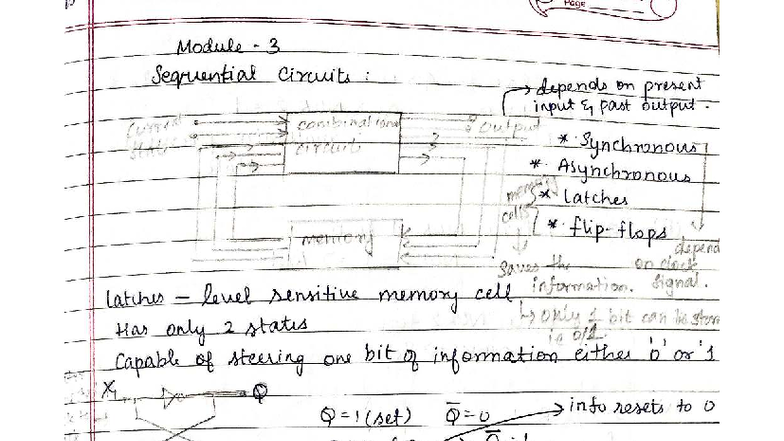 PAGE
Module - 3
Sequential Circuits :
depends on present
input & past output.
Current
State
combinational
circuit
Output
* Synchronous
* Asynchronous
memory
cells
* latches
* flip-flops
memory
depend
on clock
signal.
saves the
information.
latches - level sensitive memory cell
only 1 bit can be stor
is 0/1.
Has only 2 states
Capable of steering one bit of information either '0' or '1
Q
Q = 1 (set) Q̅ = 0 info resets to 0